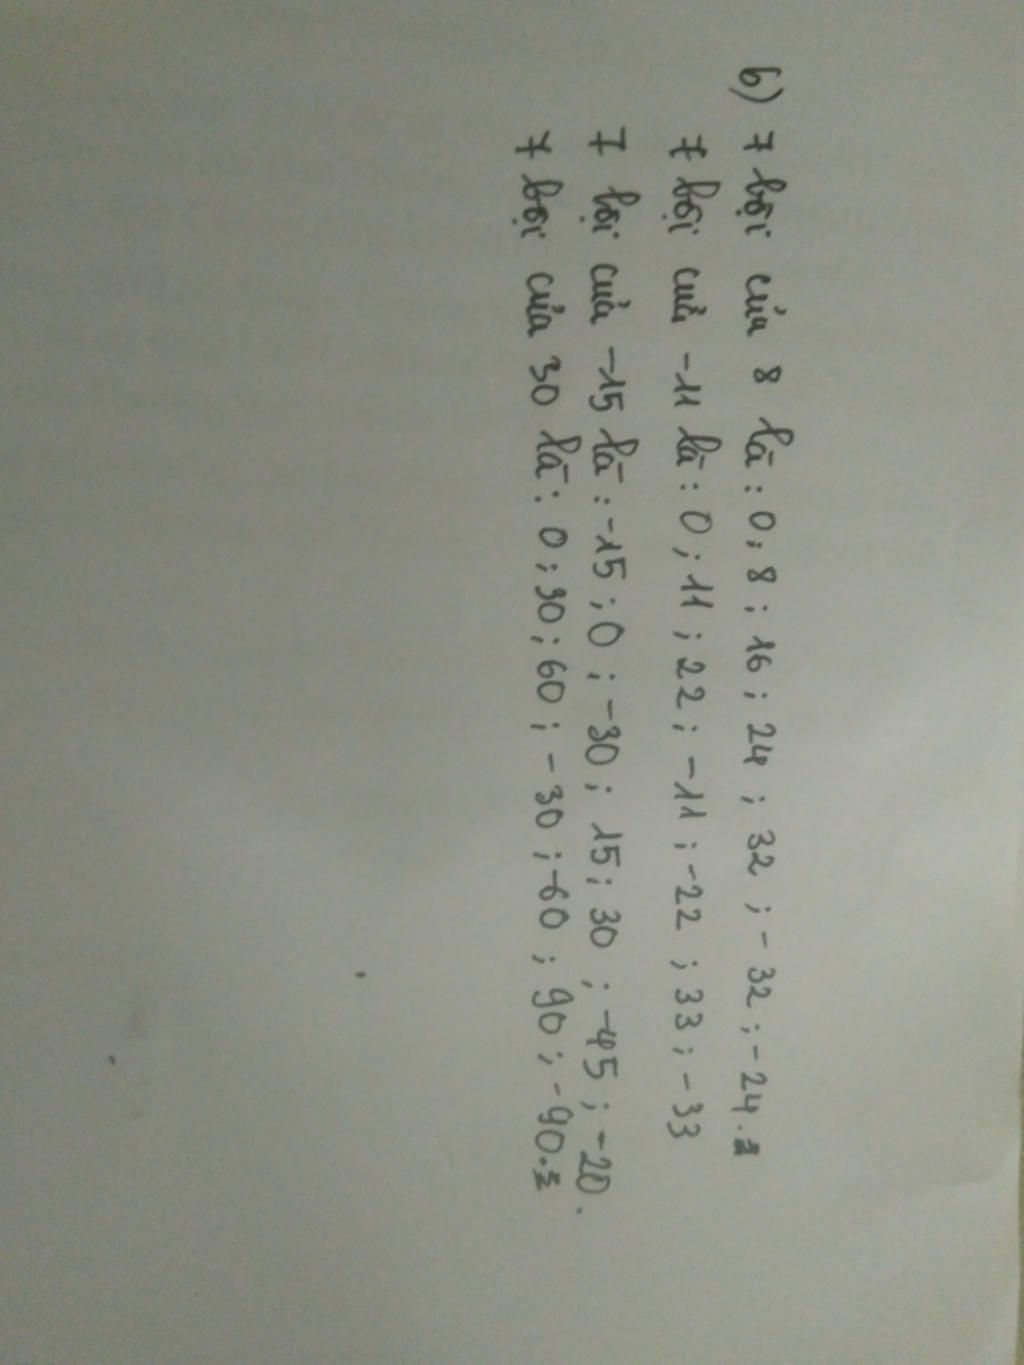 b) 7 bội của 8 là : 0 ; 8 ; 16 ; 24 ; 32 ; -32 ; -24.
7 bội củả -11 là : 0 ; 11 ; 22 ; -11 ; -22 ; 33 ; -33
7 bội củả -15 là : -15 ; 0 ; -30 ; 15 ; 30 ; -45 ; -20.
7 bội của 30 là : 0 ; 30 ; 60 ; -30 ; -60 ; 90 ; -90.